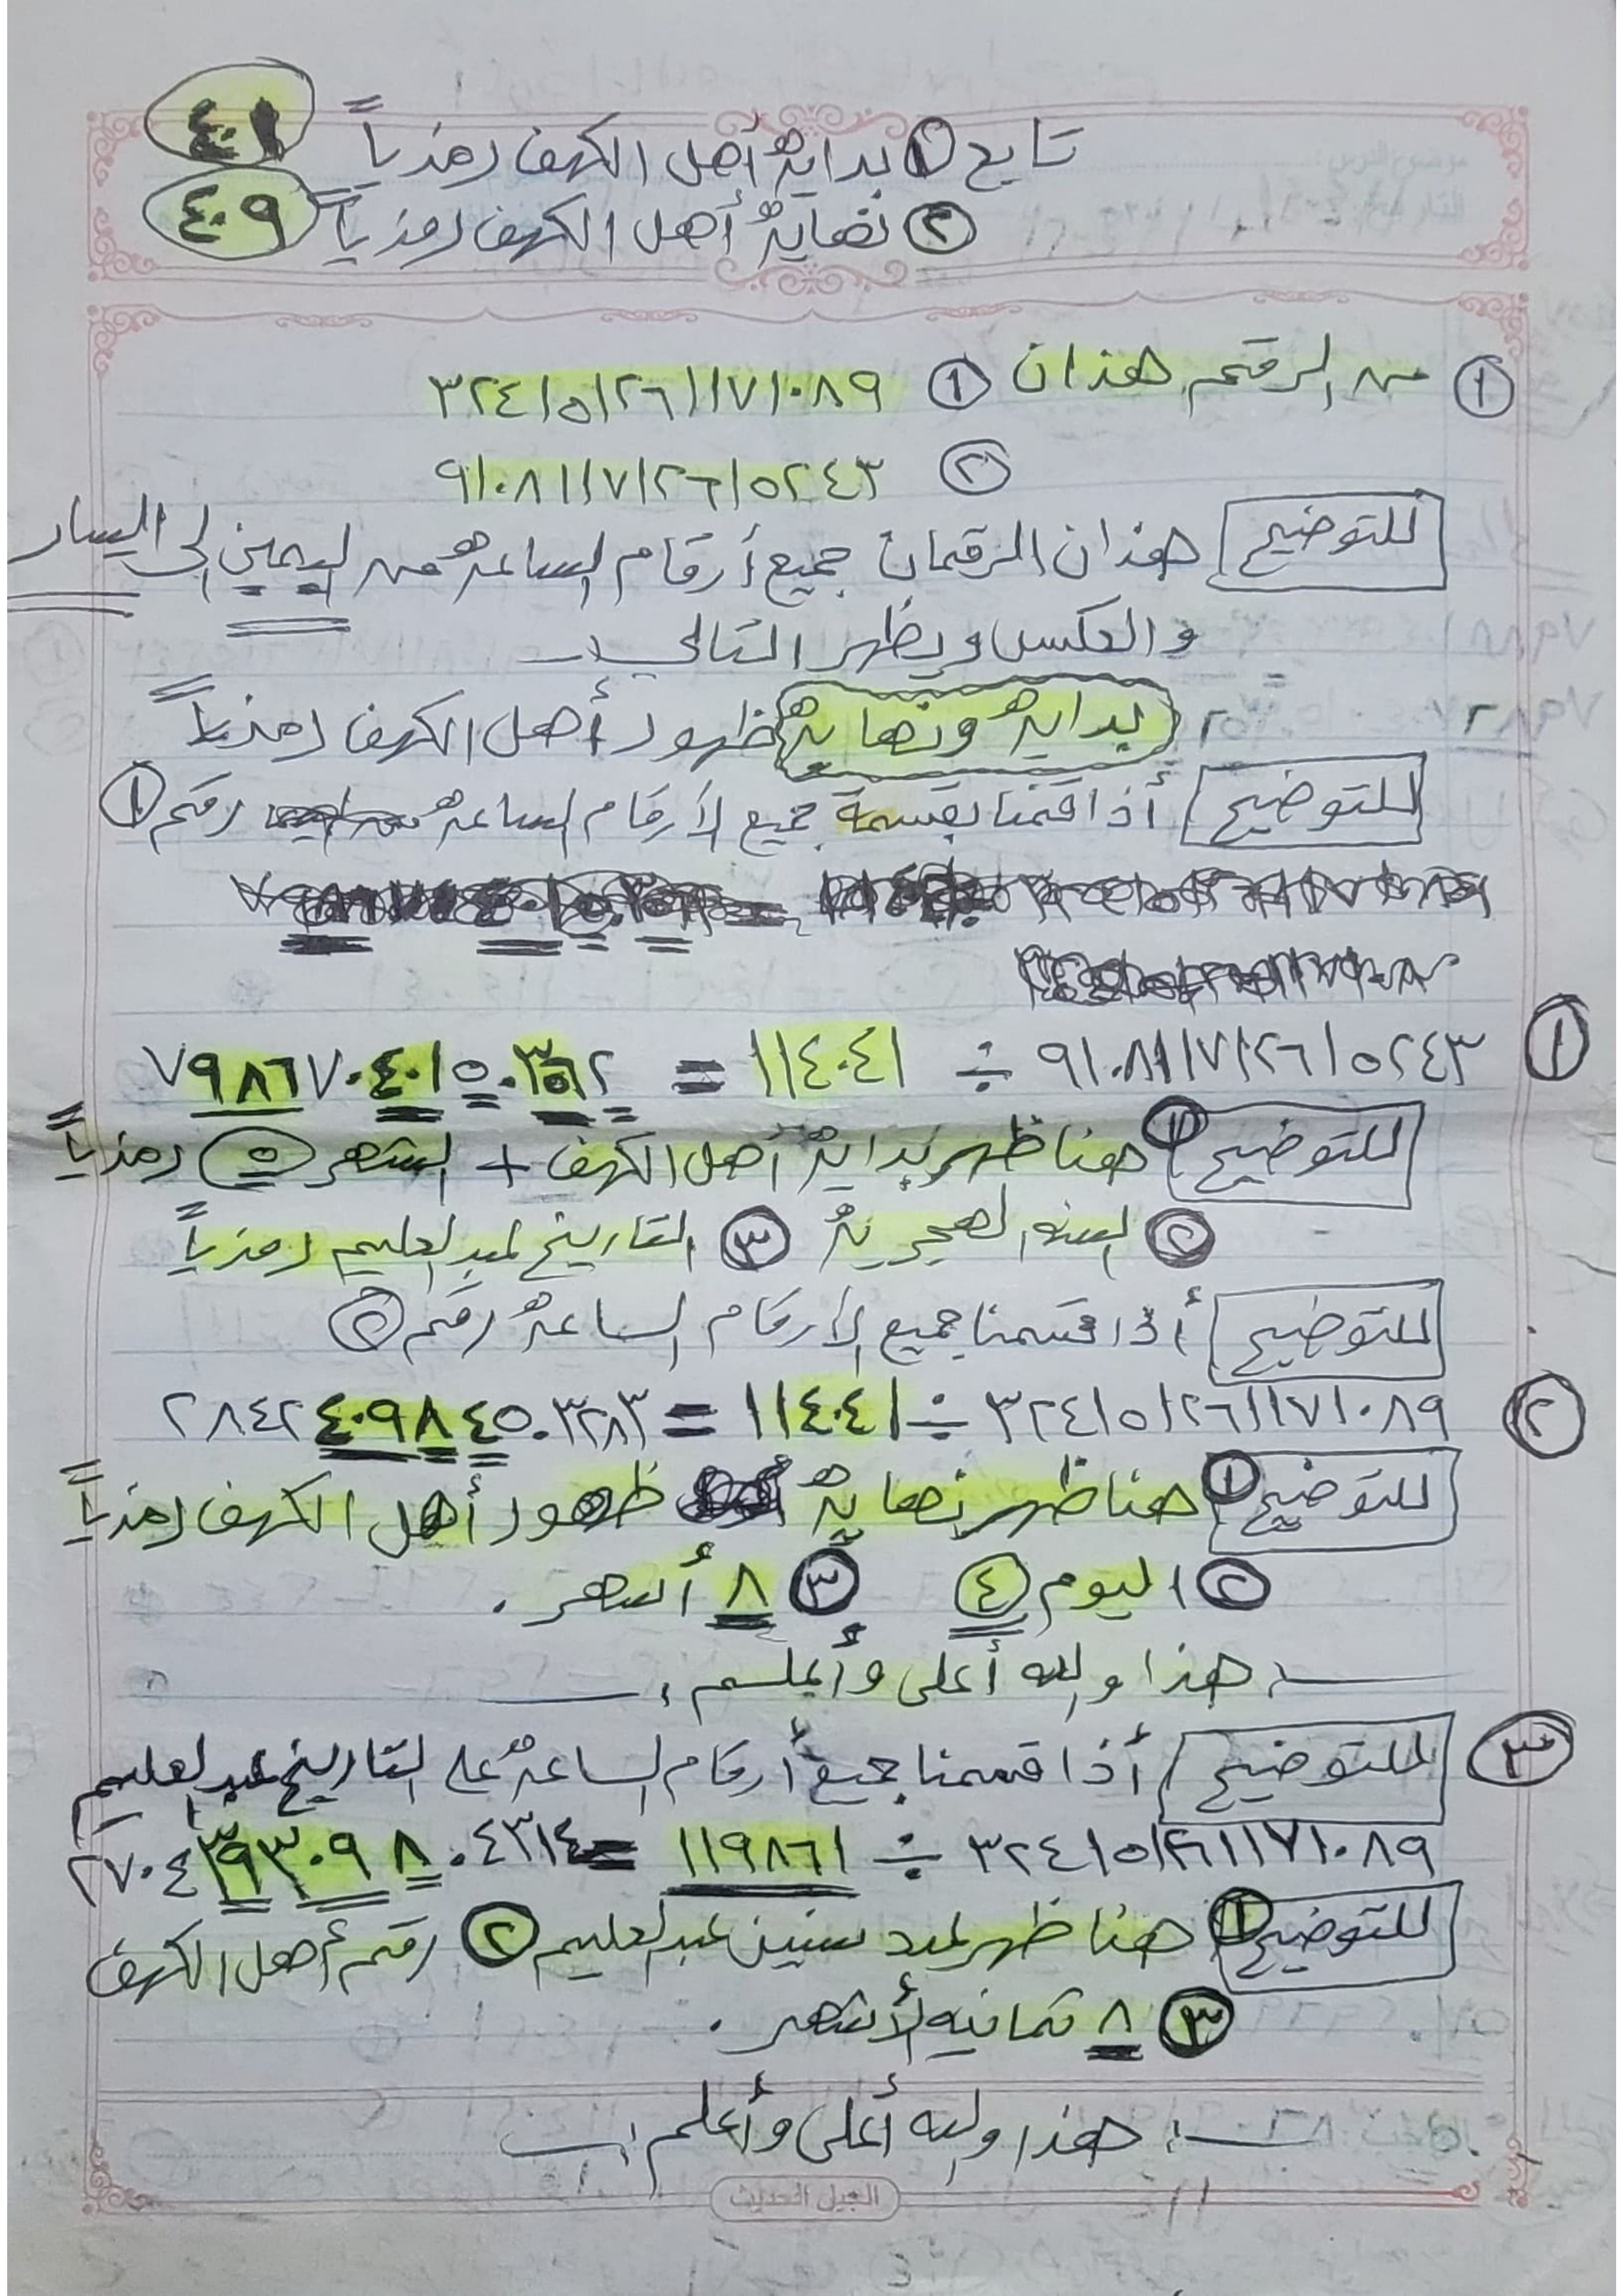 تابع ١ بداية أهل الكهف رمزياً ٤٠١
٢ نهاية أهل الكهف رمزياً ٤٠٩
١ من الرقم هذان ١ ٣٢٤١٥١٢٦١١٧١٠٨٩
٢ ٩١٠٨١١٧١٢٦١٥٢٤٣
للتوضيح هذان الرقمان جميع أرقام الساعة من اليمين إلى اليسار
والعكس ويظهر التالي :
٢ بداية ونهاية ظهور أهل الكهف رمزياً
للتوضيح أذا قمنا بقسمة جميع الأرقام الساعة رقم ١
١ ٩١٠٨١١٧١٢٦١٥٢٤٣ ÷ ١١٤٠٤١ = ٧٩٨٦٧٠٤٠١٥٠.٣٥٦٢
للتوضيح ١ هنا ظهر بداية أهل الكهف + الشهر ٥ رمزياً
٢ السنه الهجرية ٣ التاريخ لعبد العليم رمزياً
للتوضيح أذا قسمنا جميع الأرقام الساعة رقم ٢
٢ ٣٢٤١٥١٢٦١١٧١٠٨٩ ÷ ١١٤٠٤١ = ٢٨٤٢٤٠٩٨٤٥٠.٣٢٨٣
للتوضيح ١ هنا ظهر نهاية ظهور أهل الكهف رمزياً
٢ اليوم ٤ ٣ ٨ أشهر .
هذا والله أعلى وأعلم
٣ للتوضيح أذا قسمنا جميع أرقام الساعة على التاريخ عبد العليم
٣٢٤١٥١٢٦١١٧١٠٨٩ ÷ ١١٩٨٦١ = ٢٧٠٤٣٩٣٠٩٨٠.٤٣١٤
للتوضيح ١ هنا ظهر سنين عبد العليم ٢ رقم أهل الكهف
٣ ٨ ثمانيه لأشهر .
هذا والله أعلى وأعلم
الجيل الحديث